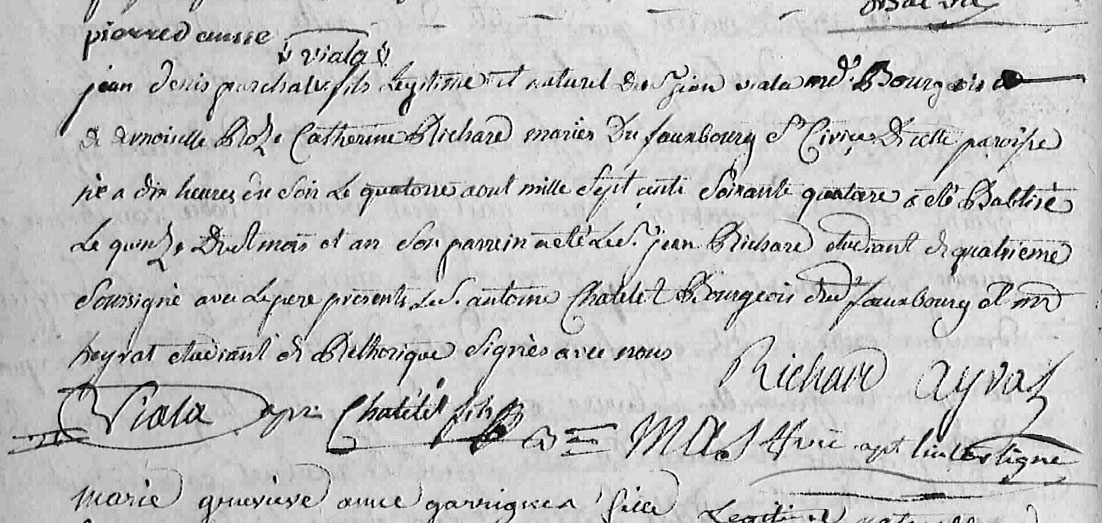 pierredumse
viala
jean denis paschal fils legitime et naturel de Sr. jean viala md. Bourgeois &
& demoiselle Roze Catherine Richard mariés du fauxbourg St. Civice de cette paroisse
né a dix heures du soir le quatorze aout mille sept cents soixante quatorze a été Babtisé
le quinze dudt mois et an son parrein a été le Sr. jean Richard etudiant en quatrieme
soussigné avec le pere présents le Sr. antoine Chatelet Bourgeois dudt fauxbourg et mr
peyrat etudiant en Rethorique signés avec nous
Richard ayral
Viala apr Chatelet fils
apt l'interligne
marie genevieve anne garrigues fille Legit et naturelle